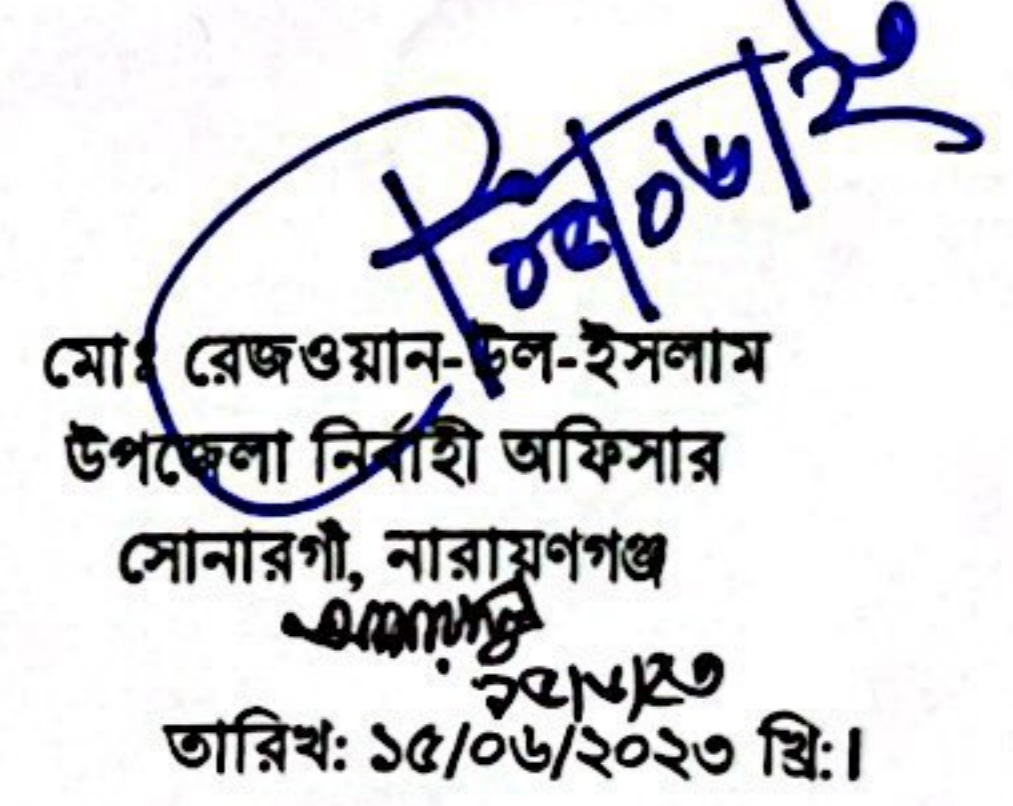 ১৫/০৬/২৩
মোঃ রেজওয়ান-উল-ইসলাম
উপজেলা নির্বাহী অফিসার
সোনারগাঁ, নারায়ণগঞ্জ
১৫/৬/২৩
তারিখ: ১৫/০৬/২০২৩ খ্রি:।